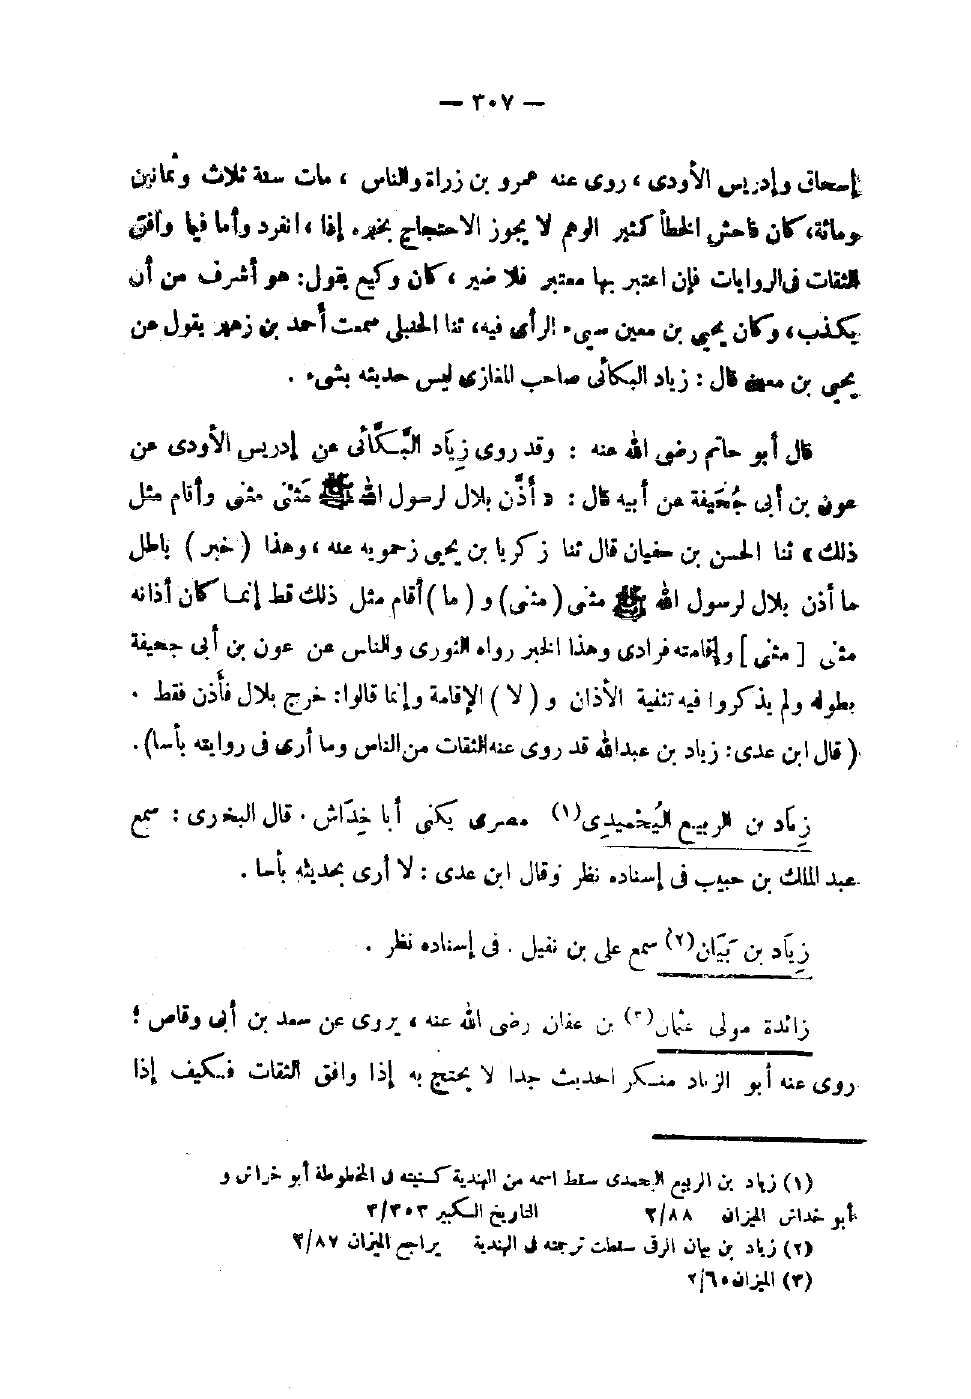 — ٣٠٧ —
إسحاق وإدريس الأودى ، روى عنه عمرو بن زراة والناس ، مات سنة ثلاث وثمانين
ومائة، كان فاحش الخطأ كثير الوهم لا يجوز الاحتجاج بخبره إذا ، انفرد وأما فيما وافق
الثقات فى الروايات فإن اعتبر بها معتبر فلا ضير ، كان وكيع يقول: هو أشرف من أن
يكذب، وكان يحيى بن معين سيىء الرأى فيه، ثنا الحنبلى سمعت أحمد بن زهير يقول عن
يحيى بن معين قال : زياد البكائى صاحب المغازى ليس حديثه بشىء .
قال أبو حاتم رضى الله عنه : وقد روى زِيَاد البَّكَّائى عن إدريس الأودى عن
عون بن أبى جُحَيفة عن أبيه قال : « أذَّن بلال لرسول الله ﷺ مَثنَى مثنى وأقام مثل
ذلك » ثنا الحسن بن سفيان قال ثنا زكريا بن يحيى زحمويه عنه ، وهذا ( خبر ) باطل
ما أذن بلال لرسول الله ﷺ مثنى ( مثنى ) و ( ما ) أقام مثل ذلك قط إنما كان أذانه
مثنى [ مثنى ] وإقامته فرادى وهذا الخبر رواه الثورى والناس عن عون بن أبى جحيفة
بطوله ولم يذكروا فيه تثنية الأذان و ( لا ) الإقامة وإنما قالوا: خرج بلال فأذن فقط .
( قال ابن عدى: زياد بن عبدالله قد روى عنه الثقات من الناس وما أرى فى روايته بأسا).
زِيَاد بن الربيع اليُحْمِيدِى(١) مصرى يكنى أبا خِدَاش . قال البخرى : سمع
عبد الملك بن حبيب فى إسناده نظر وقال ابن عدى : لا أرى بحديثه بأسا .
زِيَاد بن بَيَان(٢) سمع على بن نفيل . فى إسناده نظر .
زائدة مولى عثمان(٣) بن عفان رضى الله عنه ، يروى عن سعد بن أبى وقاص ؛
روى عنه أبو الزناد منكر احديث جدا لا يحتج به إذا وافق الثقات فكيف إذا
(١) زياد بن الربيع اليحمدى سقط اسمه من الهندية كنيته فى المخطوطة أبو خراش و
أبو خداش الميزان ٢/٨٨ التاريخ الكبير ٣/٣٥٣
(٢) زياد بن بيان الرقى سقطت ترجمته فى الهندية يراجع الميزان ٢/٨٧
(٣) الميزان ٢/٦٥